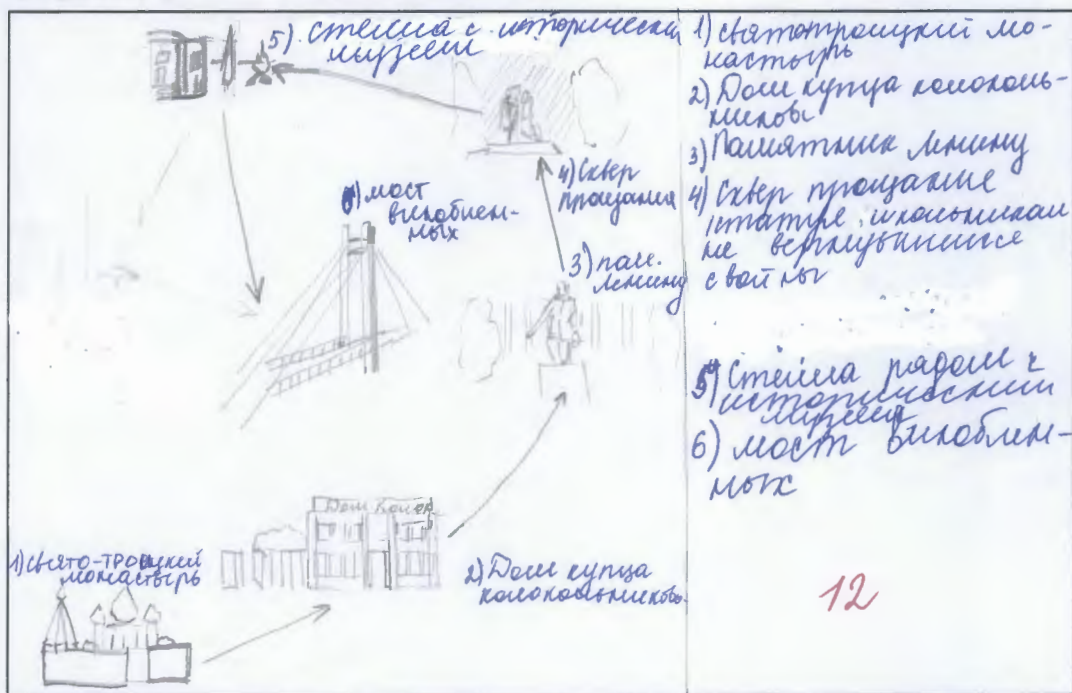 5). стелла с исторически
музеем
6) мост
влюблен-
ных
4) Сквер
прощания
3) пам.
ленину
Дом Колок.
1) свято-троицкий
монастырь
2) Дом купца
колокольникова.
1) святотроицкий мо-
настырь
2) Дом купца колоколь-
никовы
3) Памятник Ленину
4) Сквер прощание
статуе, школьникам
не вернувшиеся
с войны
5) Стелла рядом с
историческим
музеем
6) мост влюблен-
ных
12